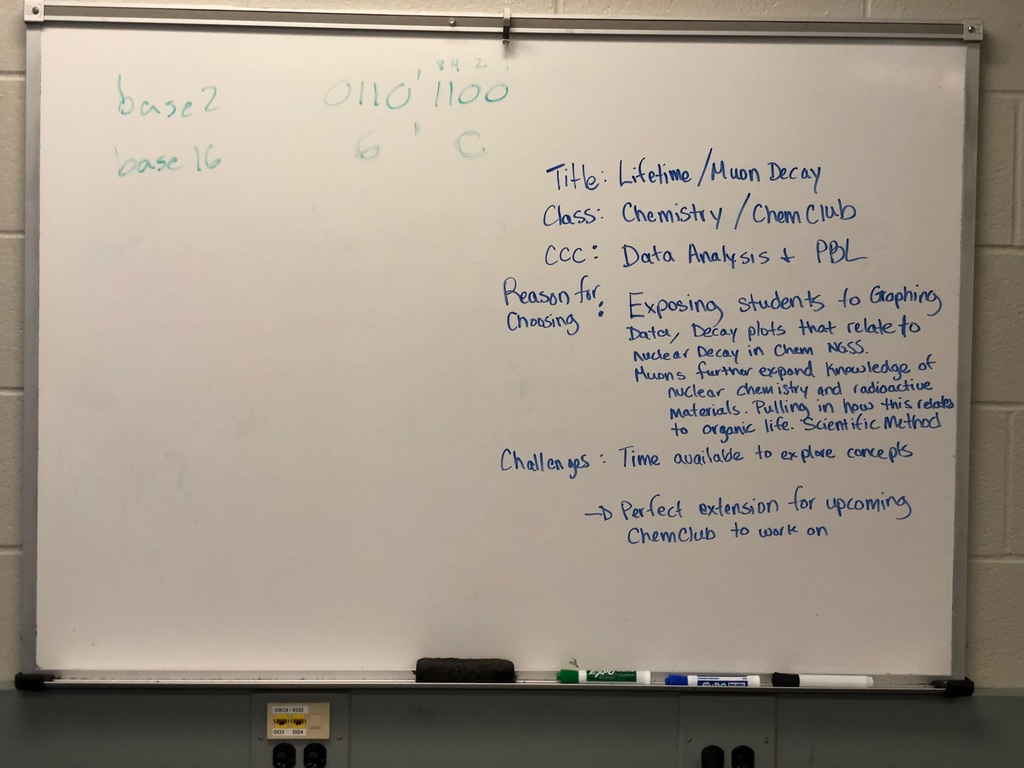 8 4 2 1
base 2 0110 ' 1100
base 16 6 ' C
Title: Lifetime / Muon Decay
Class: Chemistry / Chem Club
CCC: Data Analysis + PBL
Reason for
Choosing : Exposing students to Graphing
Data, Decay plots that relate to
nuclear Decay in Chem NGSS.
Muons further expand knowledge of
nuclear chemistry and radioactive
materials. Pulling in how this relates
to organic life. Scientific Method
Challenges: Time available to explore concepts
→ Perfect extension for upcoming
ChemClub to work on
EXPO
EXPO
OSC6 / 6322
DO3 DO4